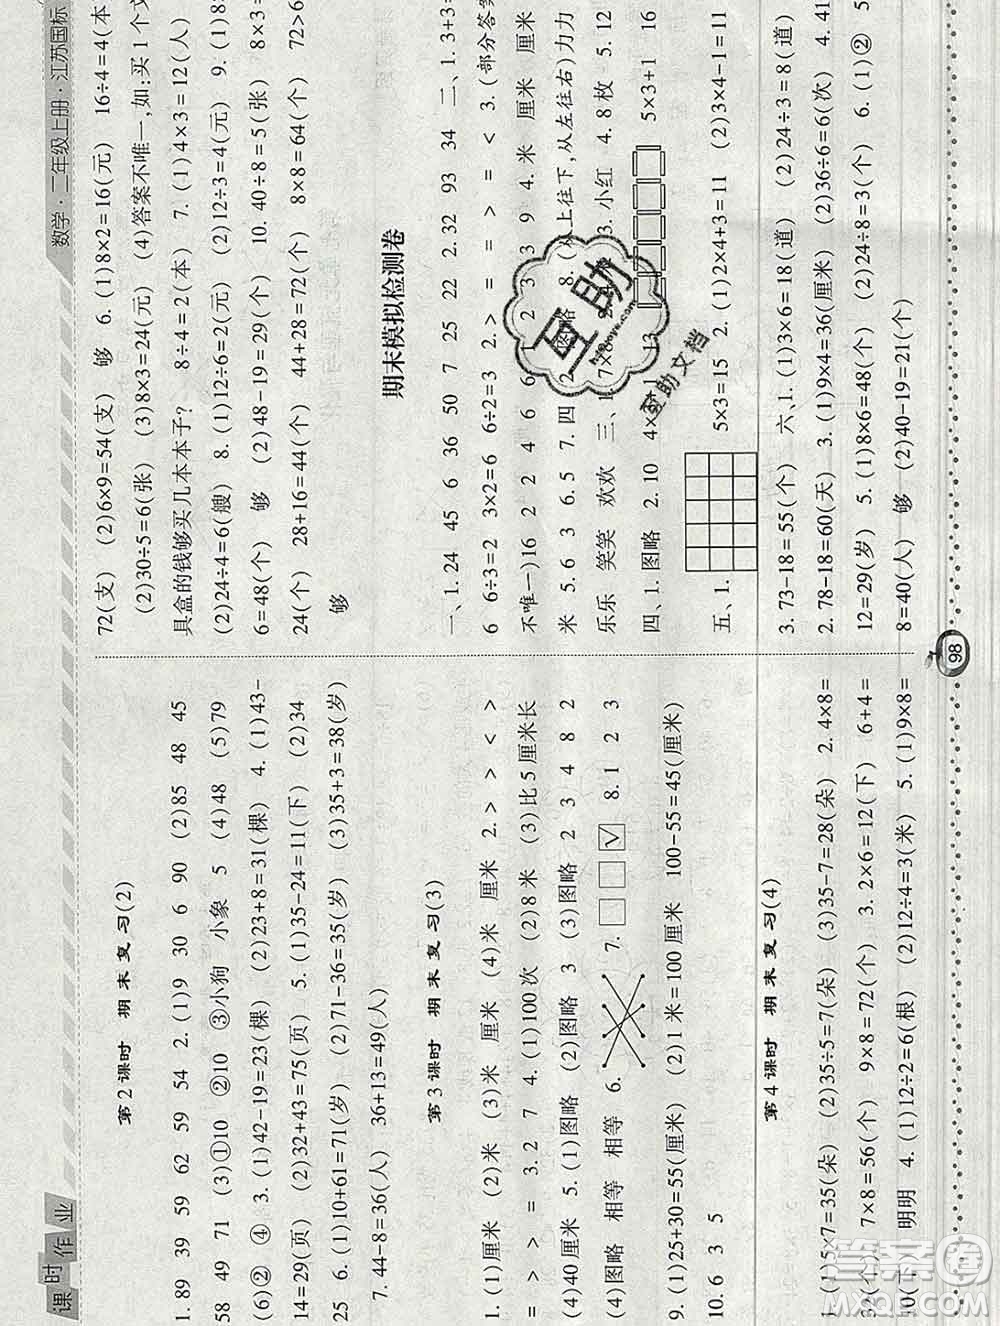 课时作业
第2课时 期末复习(2)
1. 89 39 59 62 59 54 2. (1)9 30 6 90 (2)85 48 45
58 49 71 (3)①10 ②10 ③小狗 小象 5 (4)48 (5)79
(6)② ④ 3. (1)42-19=23(棵) (2)23+8=31(棵) 4. (1)43-
14=29(页) (2)32+43=75(页) 5. (1)35-24=11(下) (2)34
25 6. (1)10+61=71(岁) (2)71-36=35(岁) (3)35+3=38(岁)
7. 44-8=36(人) 36+13=49(人)
第3课时 期末复习(3)
1. (1)厘米 (2)米 (3)米 厘米 (4)米 厘米 2. > > < >
= > > = 3. 2 7 4. (1)100次 (2)8米 (3)比5厘米长
(4)40厘米 5. (1)图略 (2)图略 3 (3)图略 2 3 4 8 2
(4)图略 相等 相等 6. 7. □□☑ 8. 1 2 3
9. (1)25+30=55(厘米) (2)1米=100厘米 100-55=45(厘米)
10. 6 3 5
第4课时 期末复习(4)
1. (1)5×7=35(朵) (2)35÷5=7(朵) (3)35-7=28(朵) 2. 4×8=
32(个) 7×8=56(个) 9×8=72(个) 3. 2×6=12(下) 6+4=
10(下) 明明 4. (1)12÷2=6(根) (2)12÷4=3(米) 5. (1)9×8=
数学·二年级上册·江苏国标
72(支) (2)6×9=54(支) 够 6. (1)8×2=16(元) 16÷4=4(本
(2)30÷5=6(张) (3)8×3=24(元) (4)答案不唯一,如:买1个文
具盒的钱够买几本本子? 8÷4=2(本) 7. (1)4×3=12(人)
(2)24÷4=6(艘) 8. (1)12÷6=2(元) (2)12÷3=4(元) 9. (1)8
6=48(个) 够 (2)48-19=29(个) 10. 40÷8=5(张) 8×3=
24(个) 28+16=44(个) 44+28=72(个) 8×8=64(个) 72>6
够
期末模拟检测卷
一、1. 24 45 6 36 50 7 25 22 2. 32 93 34 二、1. 3+3=
6 6÷3=2 3×2=6 6÷2=3 2. > = = > = < 3. (部分答案
不唯一)16 2 2 4 6 6 1 2 3 3 9 4. 米 厘米 厘米
米 5. 6 3 6. 5 7. 四 2 图略 8. (从上往下,从左往右)力力
乐乐 笑笑 欢欢 三、1. 7×8 3. 小红 4. 8枚 5. 12
四、1. 图略 2. 10 4× 13 5×3+1 16
五、1. 5×3=15 2. (1)2×4+3=11 (2)3×4-1=11
3. 73-18=55(个) 六、1. (1)3×6=18(道) (2)24÷3=8(道)
2. 78-18=60(天) 3. (1)9×4=36(厘米) (2)36÷6=6(次) 4. 41
12=29(岁) 5. (1)8×6=48(个) (2)24÷8=3(个) 6. (1)② 5
8=40(人) 够 (2)40-19=21(个)
98
互助
互助文档
答案圈
MXQE.COM